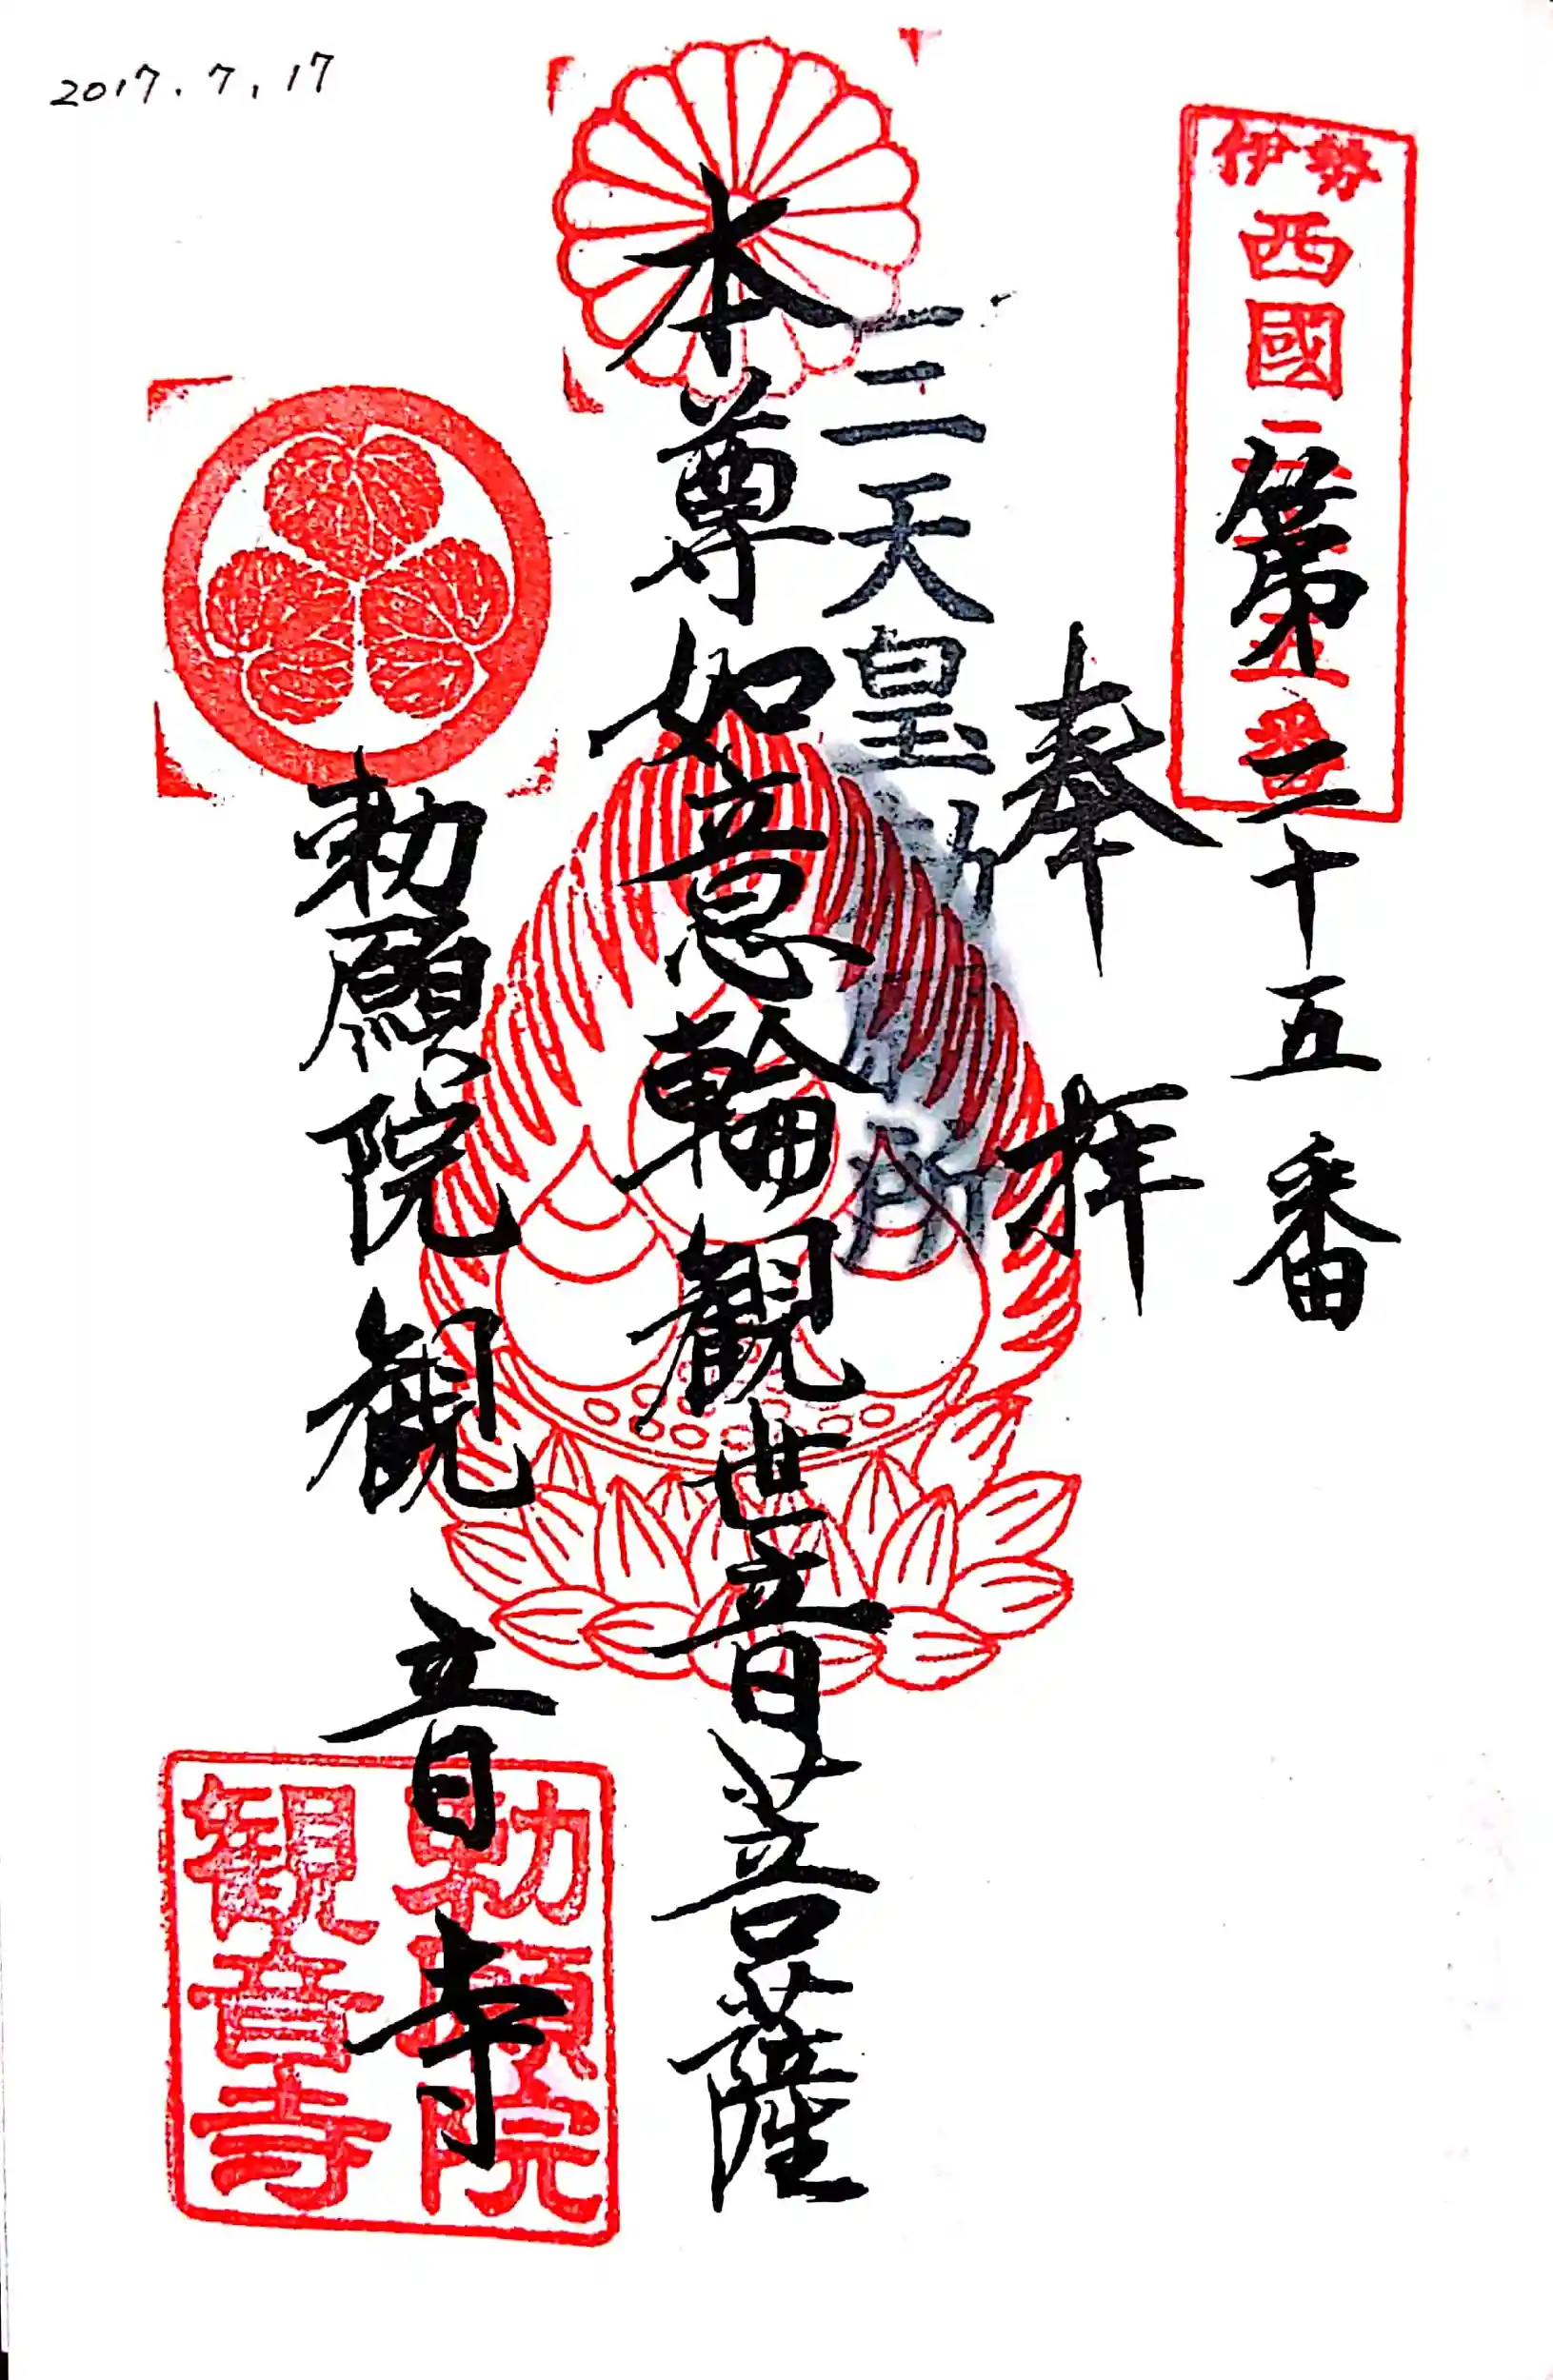 2017.7.17
伊勢
西國
第二十五番
奉拝
三天皇 所
本尊如意輪観世音菩薩
勅願院観音寺
勅願院
観音寺